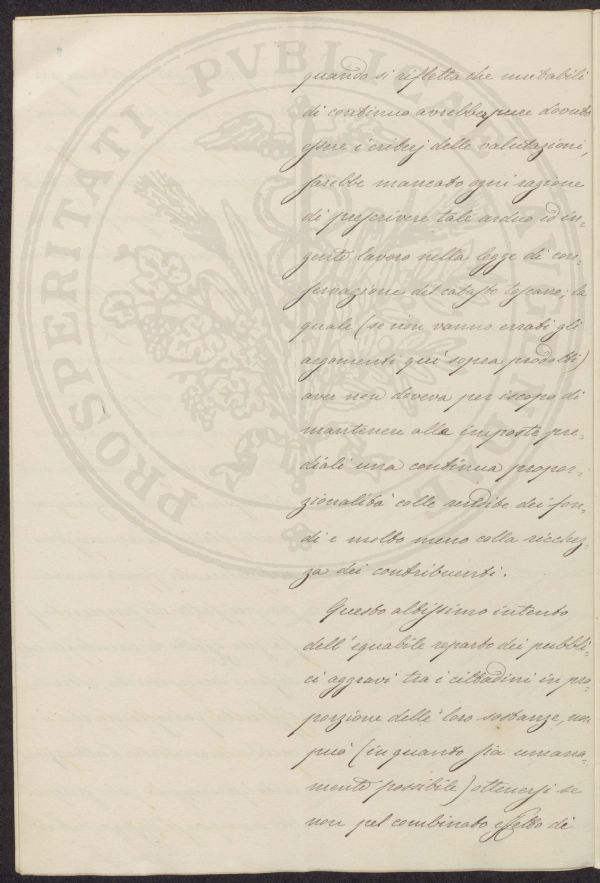 quando si rifletta che mutabili
di continuo avrebbe pure dovuto
essere i criterj delle valutazioni,
sarebbe mancato ogni ragione
di prescrivere tale arduo ed in-
gente lavoro nella legge di con-
servazione del catasto toscano; la
quale (se non vanno errati gli
argomenti qui sopra prodotti)
aver non doveva per iscopo di
mantenere alle imposte pre-
diali una continua propor-
zionalità colle rendite dei fon-
di e molto meno colla ricchez-
za dei contribuenti.
Questo altissimo intento
dell'equabile reparto dei pubbli-
ci aggravi tra i cittadini in pro-
porzione delle loro sostanze, non
può (in quanto sia umana-
mente possibile) ottenersi se
non pel combinato effetto di
PROSPERITATI PVBLICAE AVGENDAE